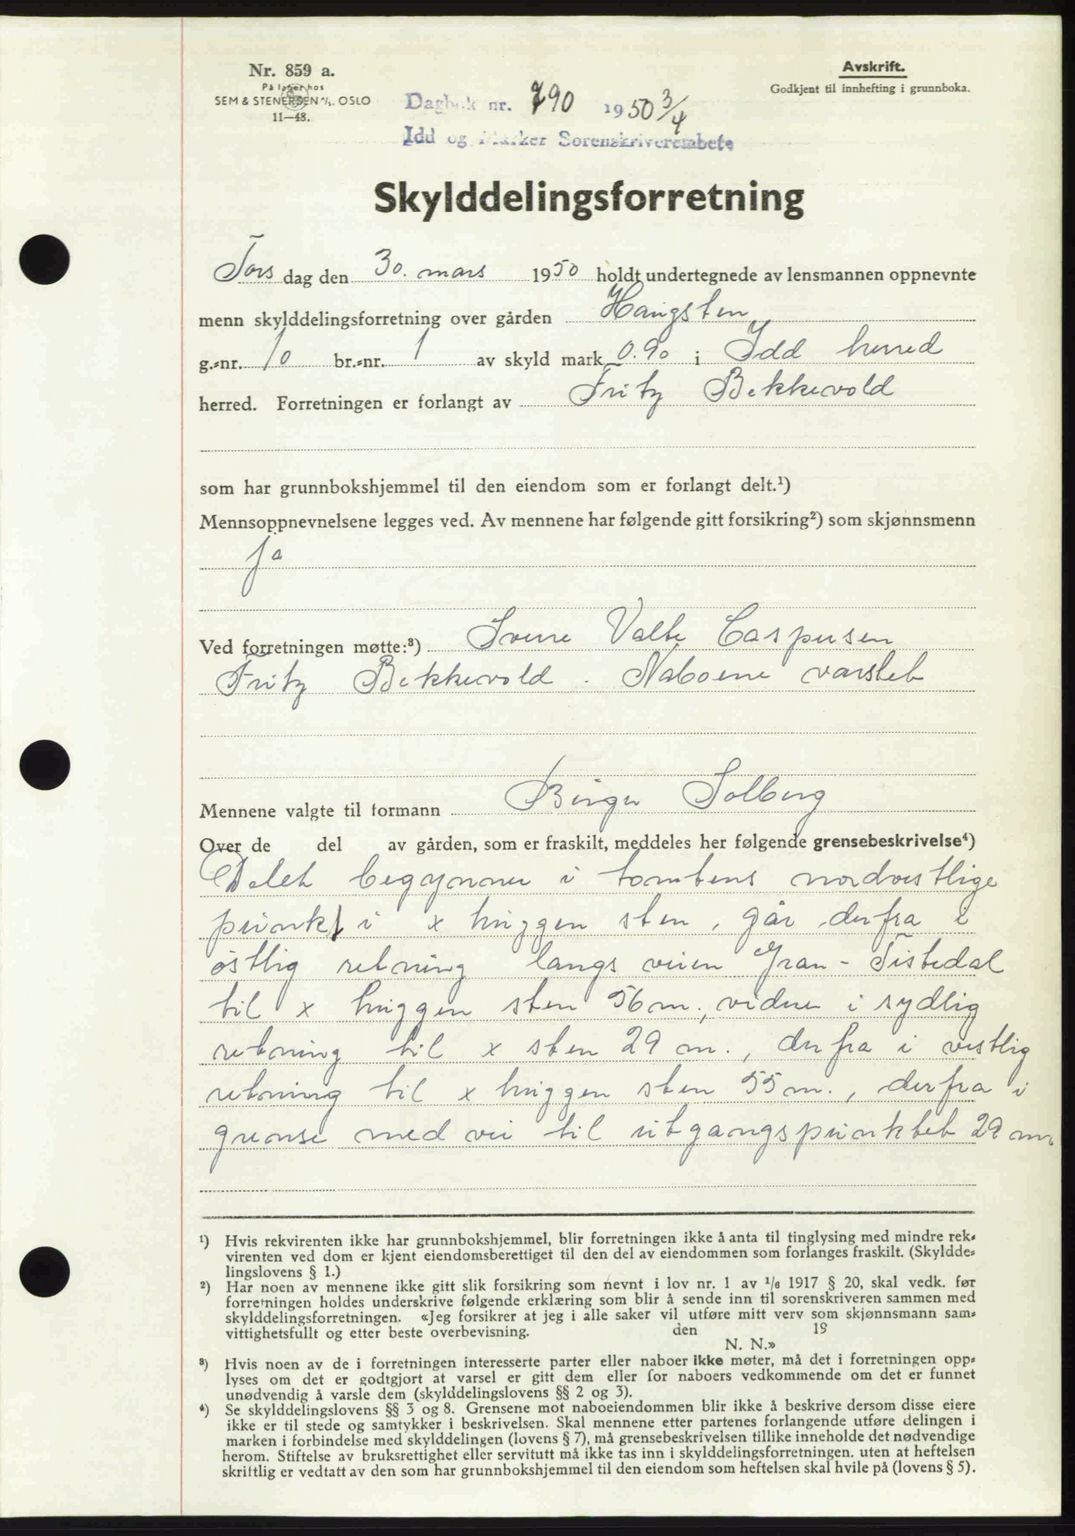 Nr. 859 a.
På lager hos
SEM & STENERSEN A/S. OSLO
11—48.
Avskrift.
Godkjent til innhefting i grunnboka.
Dagbok nr. 790 1950 3/4
Idd og Marker Sorenskriverembete
Skylddelingsforretning
Tors dag den 30. mars 1950 holdt undertegnede av lensmannen oppnevnte
menn skylddelingsforretning over gården Haugsten
g.-nr. 10 br.-nr. 1 av skyld mark 0.90 i Idd herred
herred. Forretningen er forlangt av Fritz Bekkevold
som har grunnbokshjemmel til den eiendom som er forlangt delt.¹)
Mennsoppnevnelsene legges ved. Av mennene har følgende gitt forsikring²) som skjønnsmenn
ja
Ved forretningen møtte:³) Sverre Valte Caspersen
Fritz Bekkevold. Naboene varslet
Mennene valgte til formann Birger Solberg
Over de del av gården, som er fraskilt, meddeles her følgende grensebeskrivelse⁴)
Delet begynner i tomtens nordvestlige
punkt i x huggen sten, går derfra i
østlig retning langs veien Gran - Tistedal
til x huggen sten 56 m., videre i sydlig
retning til x sten 29 m., derfra i vestlig
retning til x huggen sten 55 m., derfra i
grense med vei til utgangspunktet 29 m.
¹) Hvis rekvirenten ikke har grunnbokshjemmel, blir forretningen ikke å anta til tinglysing med mindre rek-
virenten ved dom er kjent eiendomsberettiget til den del av eiendommen som forlanges fraskilt. (Skyldde-
lingslovens § 1.)
²) Har noen av mennene ikke gitt slik forsikring som nevnt i lov nr. 1 av 1/6 1917 § 20, skal vedk. før
forretningen holdes underskrive følgende erklæring som blir å sende inn til sorenskriveren sammen med
skylddelingsforretningen. «Jeg forsikrer at jeg i alle saker vil utføre mitt verv som skjønnsmann sam-
vittighetsfullt og etter beste overbevisning. den 19
N. N.»
³) Hvis noen av de i forretningen interesserte parter eller naboer ikke møter, må det i forretningen opp-
lyses om det er godtgjort at varsel er gitt dem eller for naboers vedkommende om det er funnet
unødvendig å varsle dem (skylddelingslovens §§ 2 og 3).
⁴) Se skylddelingslovens §§ 3 og 8. Grensene mot naboeiendommen blir ikke å beskrive dersom disse eiere
ikke er til stede og samtykker i beskrivelsen. Skal mennene etter partenes forlangende utføre delingen i
marken i forbindelse med skylddelingen (lovens § 7), må grensebeskrivelsen tillike inneholde det nødvendige
herom. Stiftelse av bruksrettighet eller servitutt må ikke tas inn i skylddelingsforretningen. uten at heftelsen
skriftlig er vedtatt av den som har grunnbokshjemmel til den eiendom som heftelsen skal hvile på (lovens § 5).